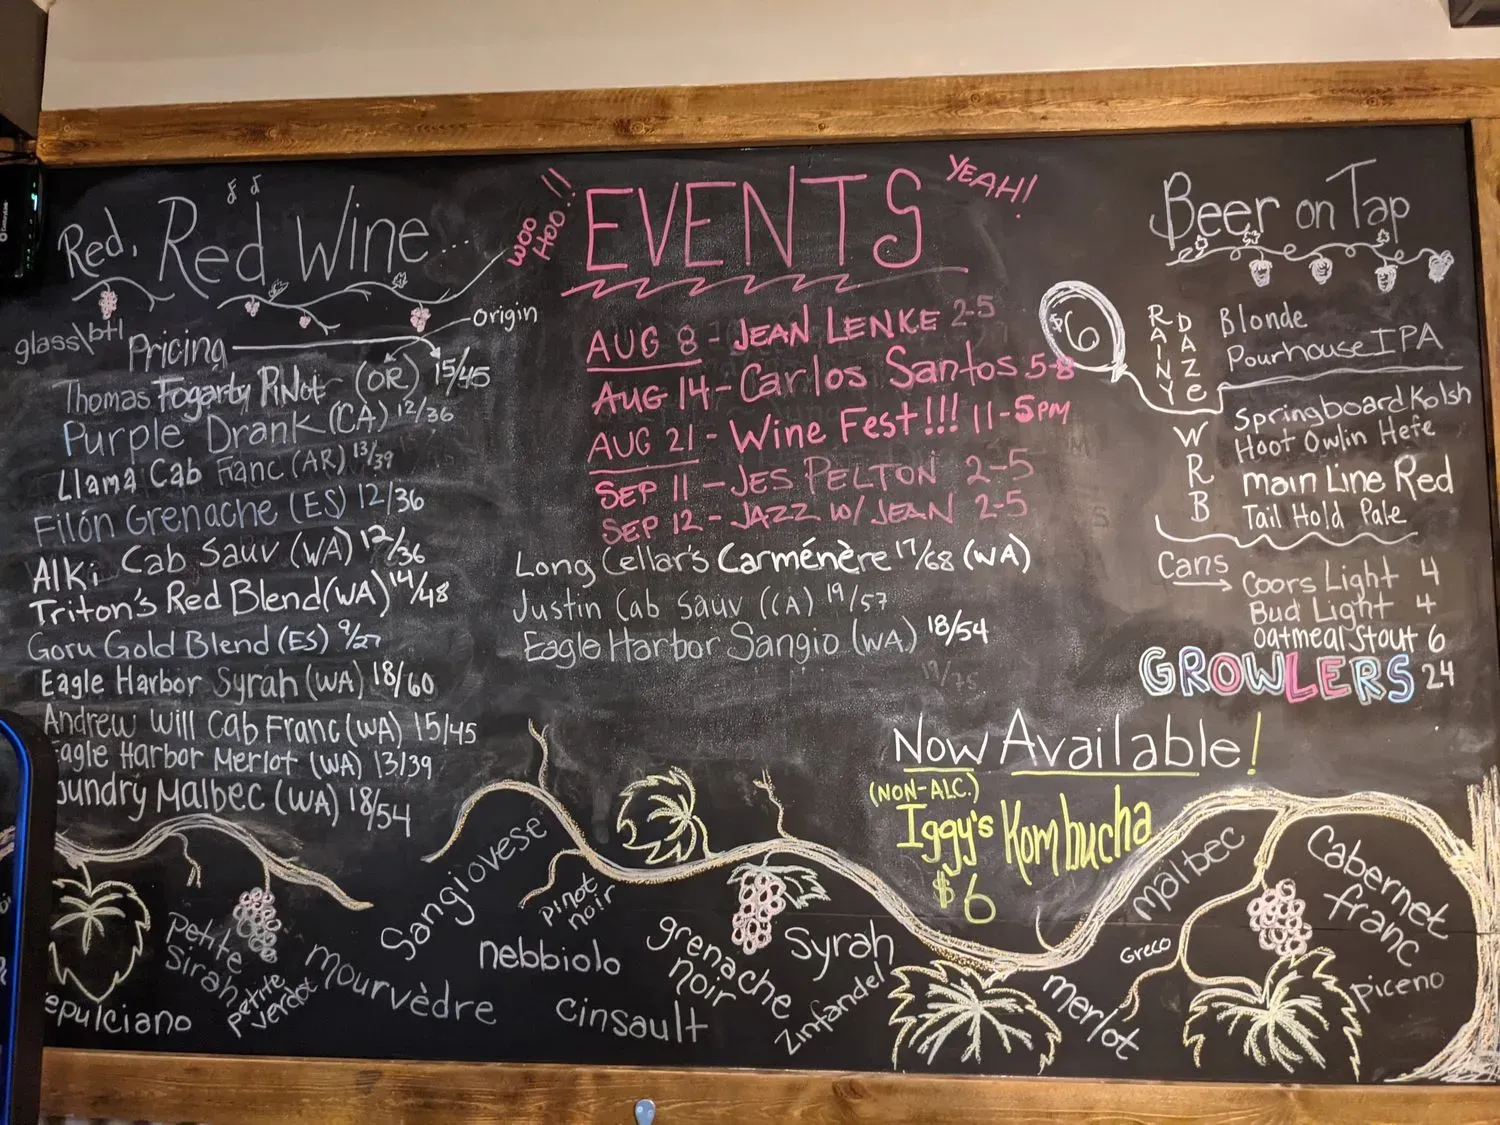 Red, Red Wine...
glass\btl
Pricing
Origin
Thomas Fogarty Pinot (OR) 15/45
Purple Drank (CA) 12/36
Llama Cab Franc (AR) 13/39
Filón Grenache (ES) 12/36
Alki Cab Sauv (WA) 12/36
Triton's Red Blend (WA) 14/48
Goru Gold Blend (ES) 9/27
Eagle Harbor Syrah (WA) 18/60
Andrew Will Cab Franc (WA) 15/45
Eagle Harbor Merlot (WA) 13/39
oundry Malbec (WA) 18/54
WOO HOO!!
EVENTS
YEAH!
AUG 8 - JEAN LENKE 2-5
AUG 14 - Carlos Santos 5-8
AUG 21 - Wine Fest!!! 11-5PM
SEP 11 - JES PELTON 2-5
SEP 12 - JAZZ W/ JEAN 2-5
Long Cellar's Carménère 17/68 (WA)
Justin Cab Sauv (CA) 19/57
Eagle Harbor Sangio (WA) 18/54
Beer on Tap
$6
RAINY DAZE
Blonde
Pourhouse IPA
WRB
Springboard Kolsh
Hoot Owlin Hefe
Main Line Red
Tail Hold Pale
Cans
Coors Light 4
Bud Light 4
Oatmeal Stout 6
GROWLERS 24
Now Available!
(NON-ALC.)
Iggy's Kombucha
$6
epulciano
Petite Sirah
petite verdot
mourvèdre
Sangiovese
pinot noir
nebbiolo
cinsault
grenache noir
Syrah
Zinfandel
merlot
Greco
malbec
Cabernet franc
piceno